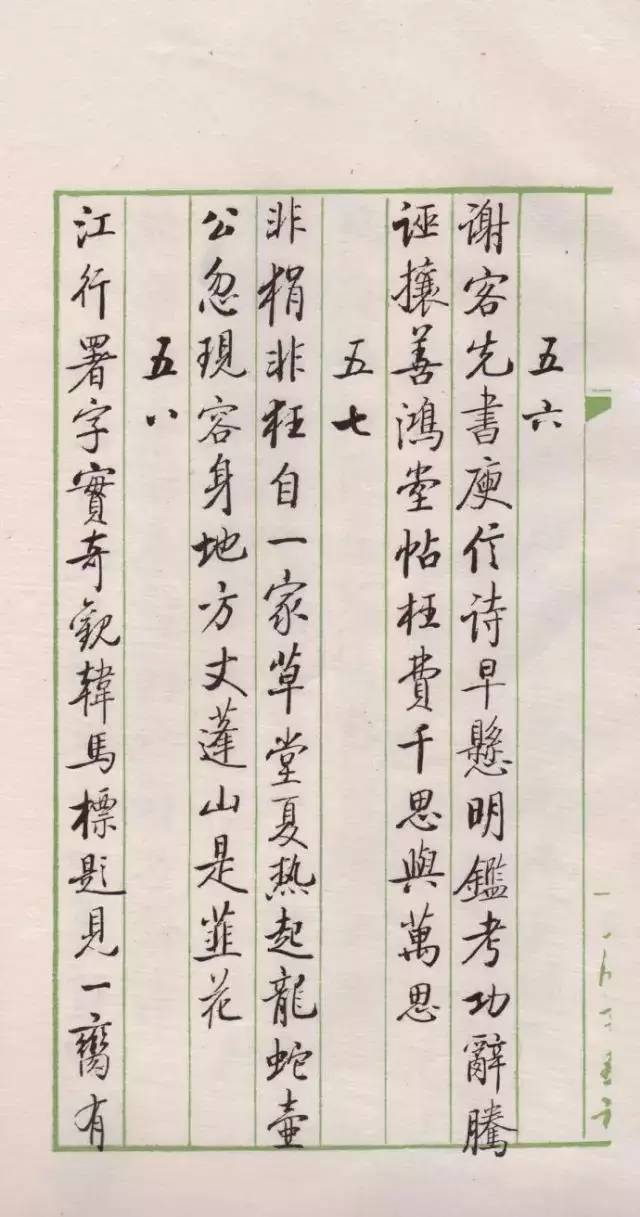 五六
謝客先書庾信詩早懸明鑑考功辭騰
誣攘善鴻堂帖枉費千思與萬思
五七
非狷非狂自一家草堂夏热起龍蛇壺
公忽現容身地方丈蓬山是韮花
五八
江行署字實奇觀韓馬標題見一臠有